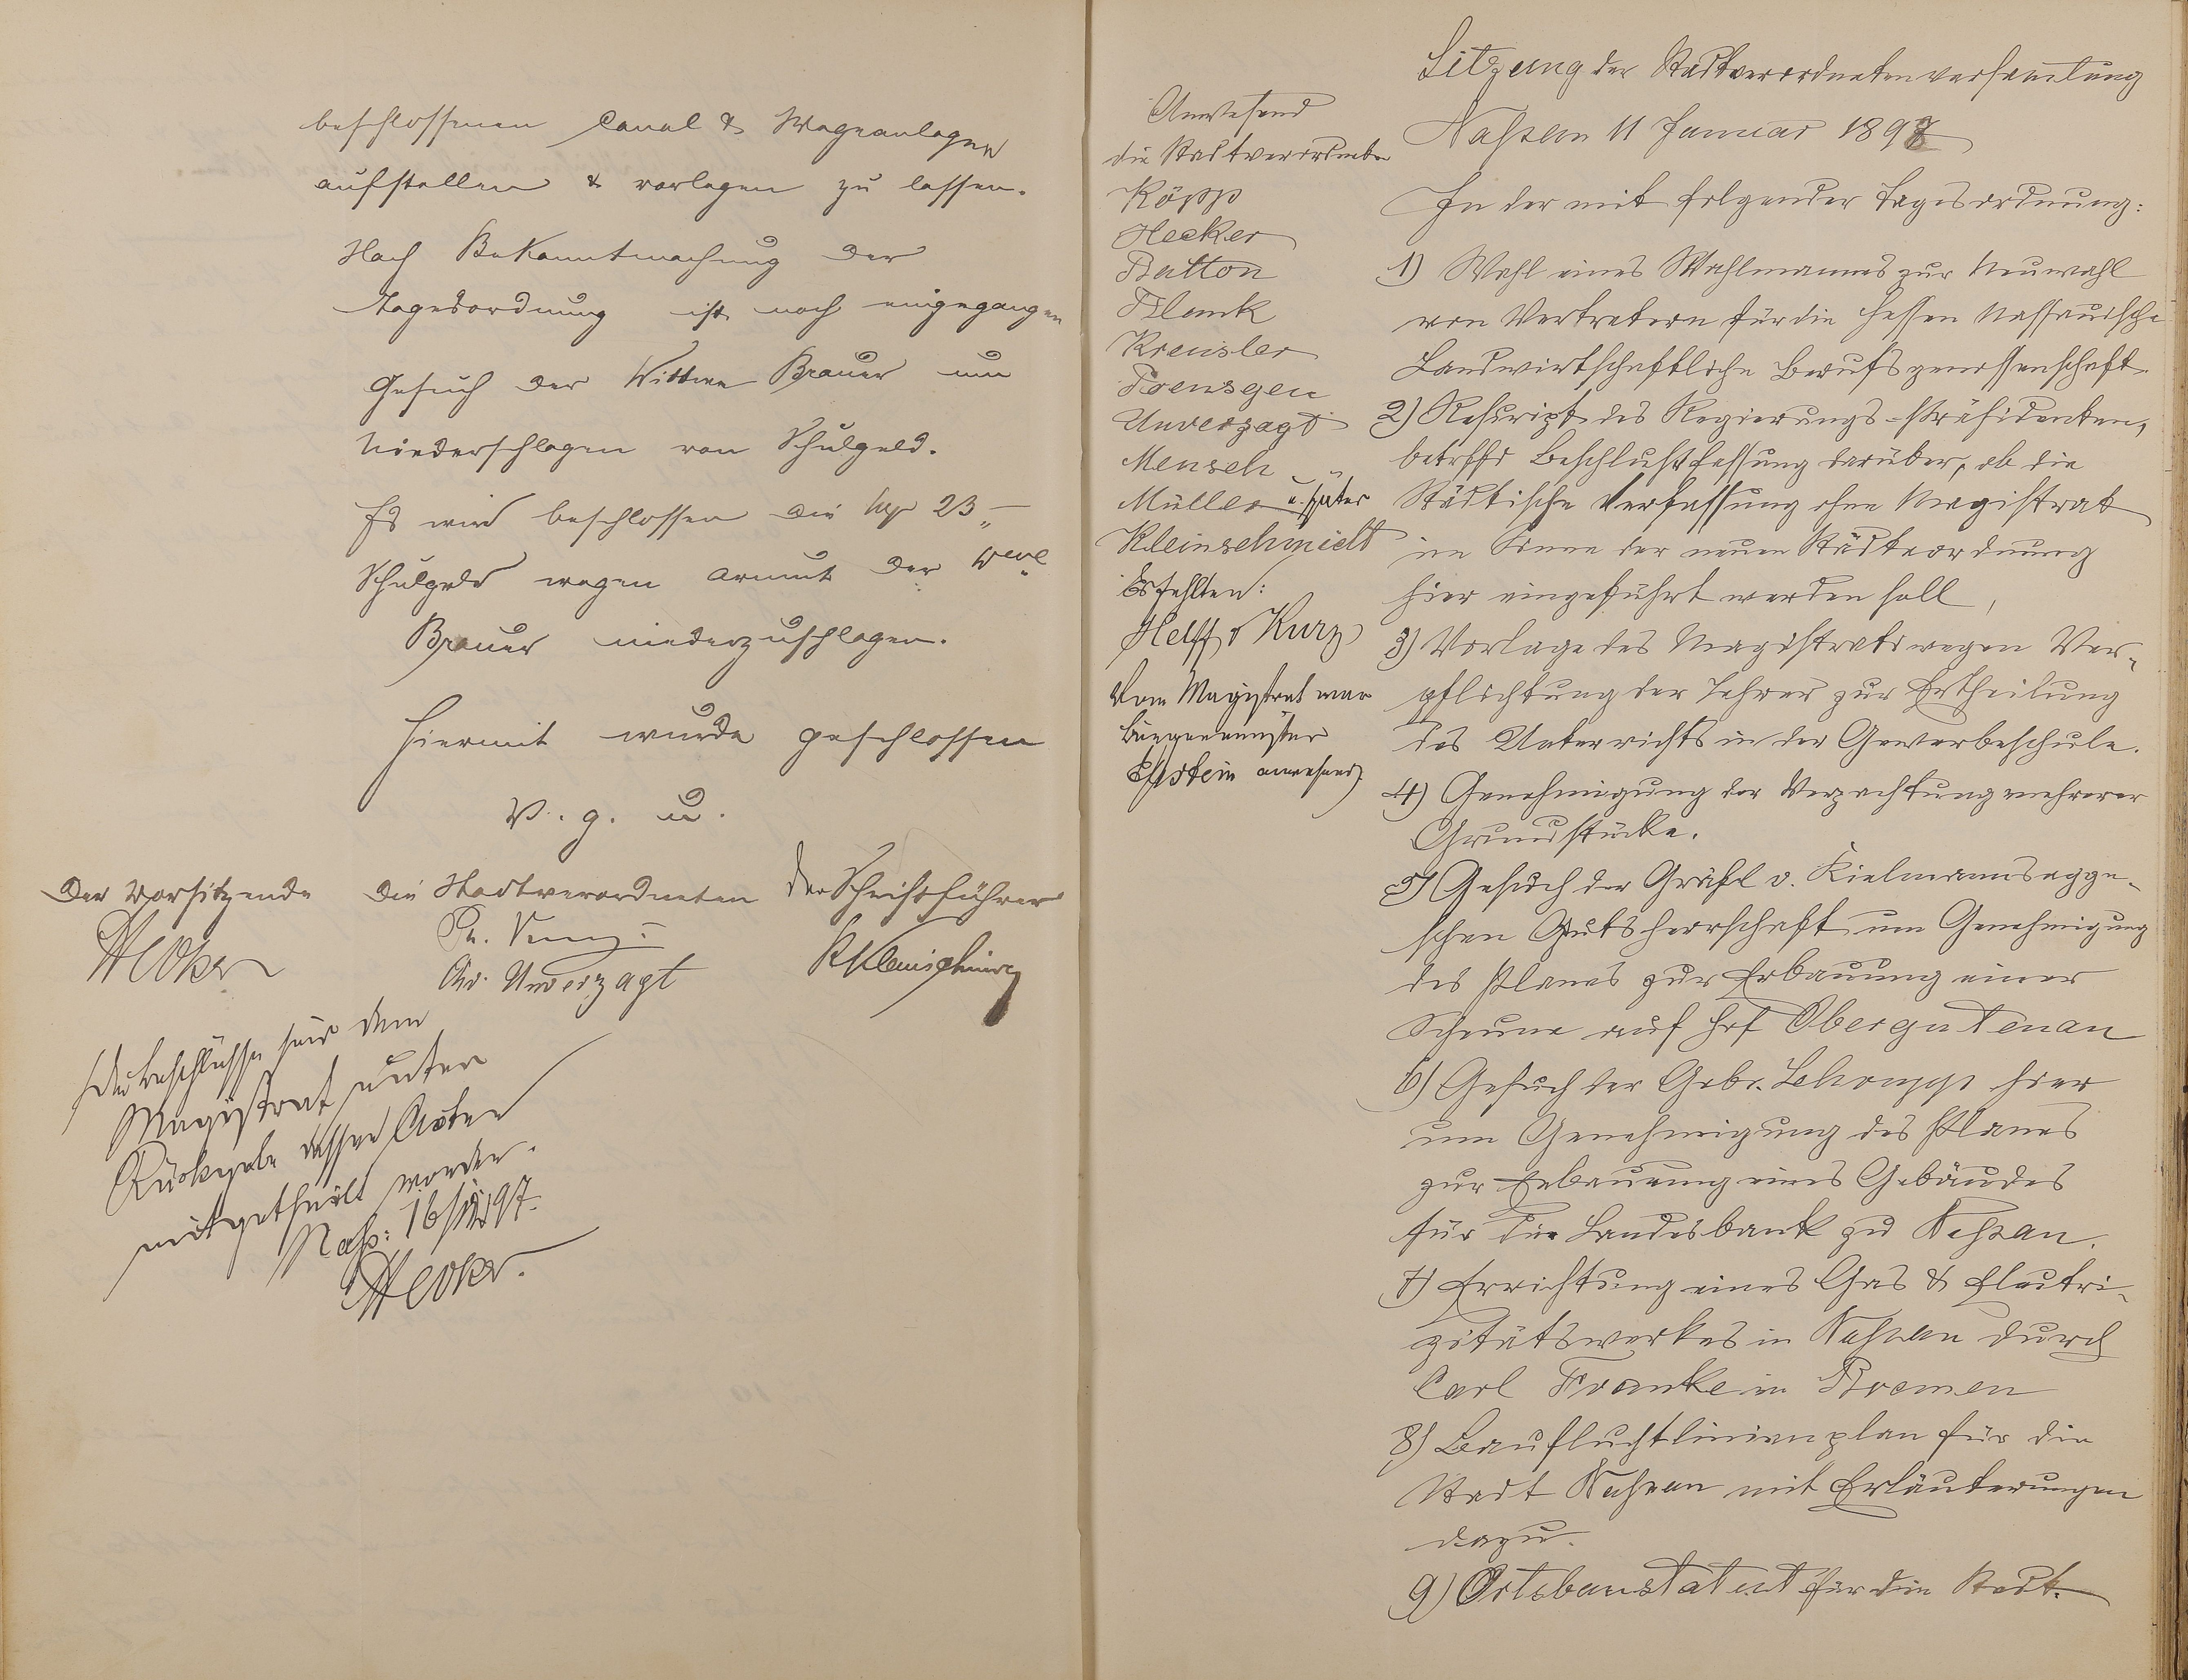 beschlossenen Canal & Wegeanlagen
aufstellen & vorlegen zu lassen.
Nach Bekanntmachung der
Tagesordnung ist noch eingegangen
Gesuch der Wittwe Brauer um
Niederschlagen von Schulgeld.
Es wird beschlossen die 23 –
Schulgeld wegen Armut der Wwe
Brauer niederzuschlagen.
Hiermit wurde geschlossen
V. g. u.
Der Vorsitzende
Hecker
die Stadtverordneten
Chr. Unverzagt
der Schriftführer
Kleinschmidt
Die Beschlüsse sind dem
Magistrat unter
Rückgabe dessen Acten
mitgetheilt worden.
Nass: 16/ 97.
Hecker.
Anwesend
die Stadtverordneten
Köpp
Hecker
Balton
Blank
Kreusler
Poensgen
Unverzagt
Mensch
Müller u. später
Kleinschmidt
Es fehlten:
Helff & Kurz
Vom Magistrat war
Bürgermeister
Epstein anwesend
Sitzung der Stadtverordnetenversamlung
Nassau 11 Januar 1898
In der mit folgender Tagesordnung:
1) Wahl eines Wahlmannes zur Neuwahl
von Vertretern für die Hessen Nassauische
Landwirtschaftliche Berufsgenossenschaft.
2) Rescript des Regierungs-Präsidenten,
betrffd Beschlußfassung darüber, ob die
Städtische Verfassung ohne Magistrat
im Sinne der neuen Städteordnung
hier eingeführt werden soll,
3) Vorlage des Magistrats wegen Ver-
pflichtung der Lehrer zur Ertheilung
des Unterrichts in der Gewerbeschule.
4) Genehmigung der Verpachtung mehrerer
Grundstücke.
5) Gesuch der Gräfl v. Kielmannsegge-
schen Gutsherrschaft um Genehmigung
des Planes zur Erbauung einer
Scheune auf Hof Obergutenau
6) Gesuch der Gebr. Schrupp hier
um Genehmigung des Planes
zur Erbauung eines Gebäudes
für die Landesbank zu Nassau.
7) Errichtung eines Gas & Electri-
zitätswerkes in Nassau durch
Carl Franke in Bremen
8) Baufluchtlinienplan für die
Stadt Nassau mit Erläuterungen
dazu.
9) Ortsbaustatut für die Stadt.